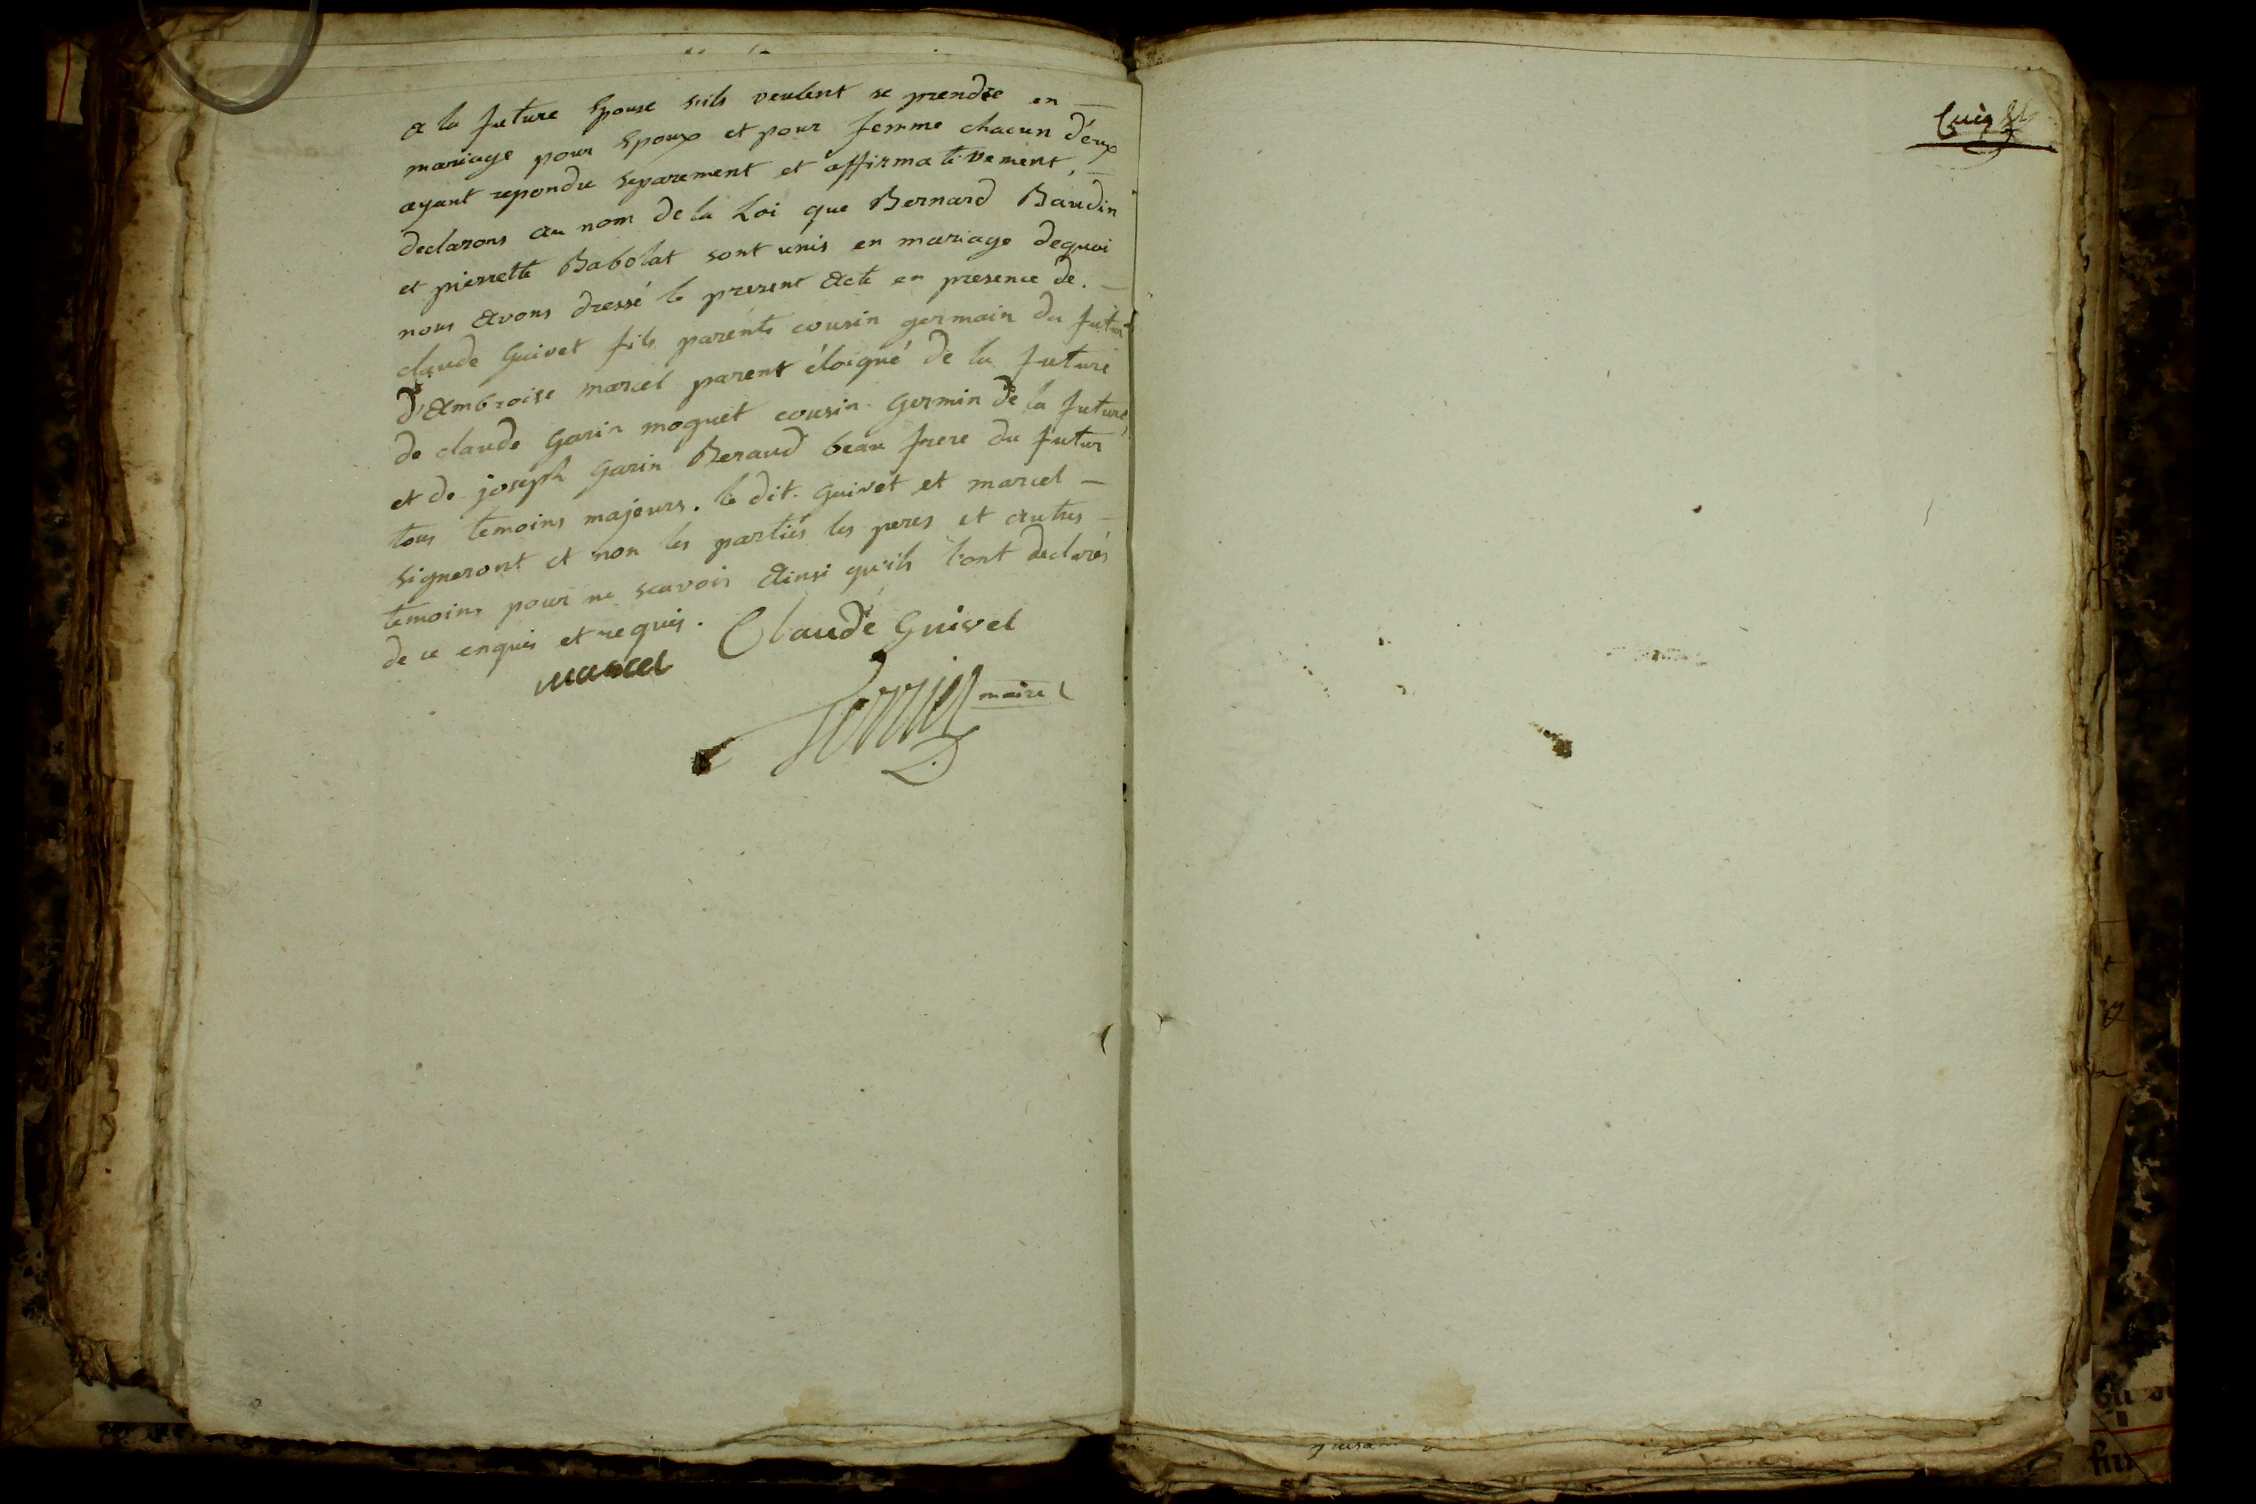 a la future Epouse s'ils veulent se prendre en
mariage pour Epoux et pour femme chacun d'eux
ayant repondu separement et affirmativement,
declarons au nom de la Loi que Bernard Baudin
et pierrette Babolat sont unis en mariage dequoi
nous avons dressé le present acte en presence de.
claude Guivet fils parents cousin germain du futur
d'ambroise marcel parent éloigné de la future
de claude Garin moquet cousin germin de la future
et de joseph Garin Beraud beau frere du futur
tous temoins majeurs. le dit. Guivet et marcel
signeront et non les parties les peres et autres
temoins pour ne scavoir ainsi qu'ils l'ont declarés
de ce enquis et requis. Claude Guivet
marcel
maire